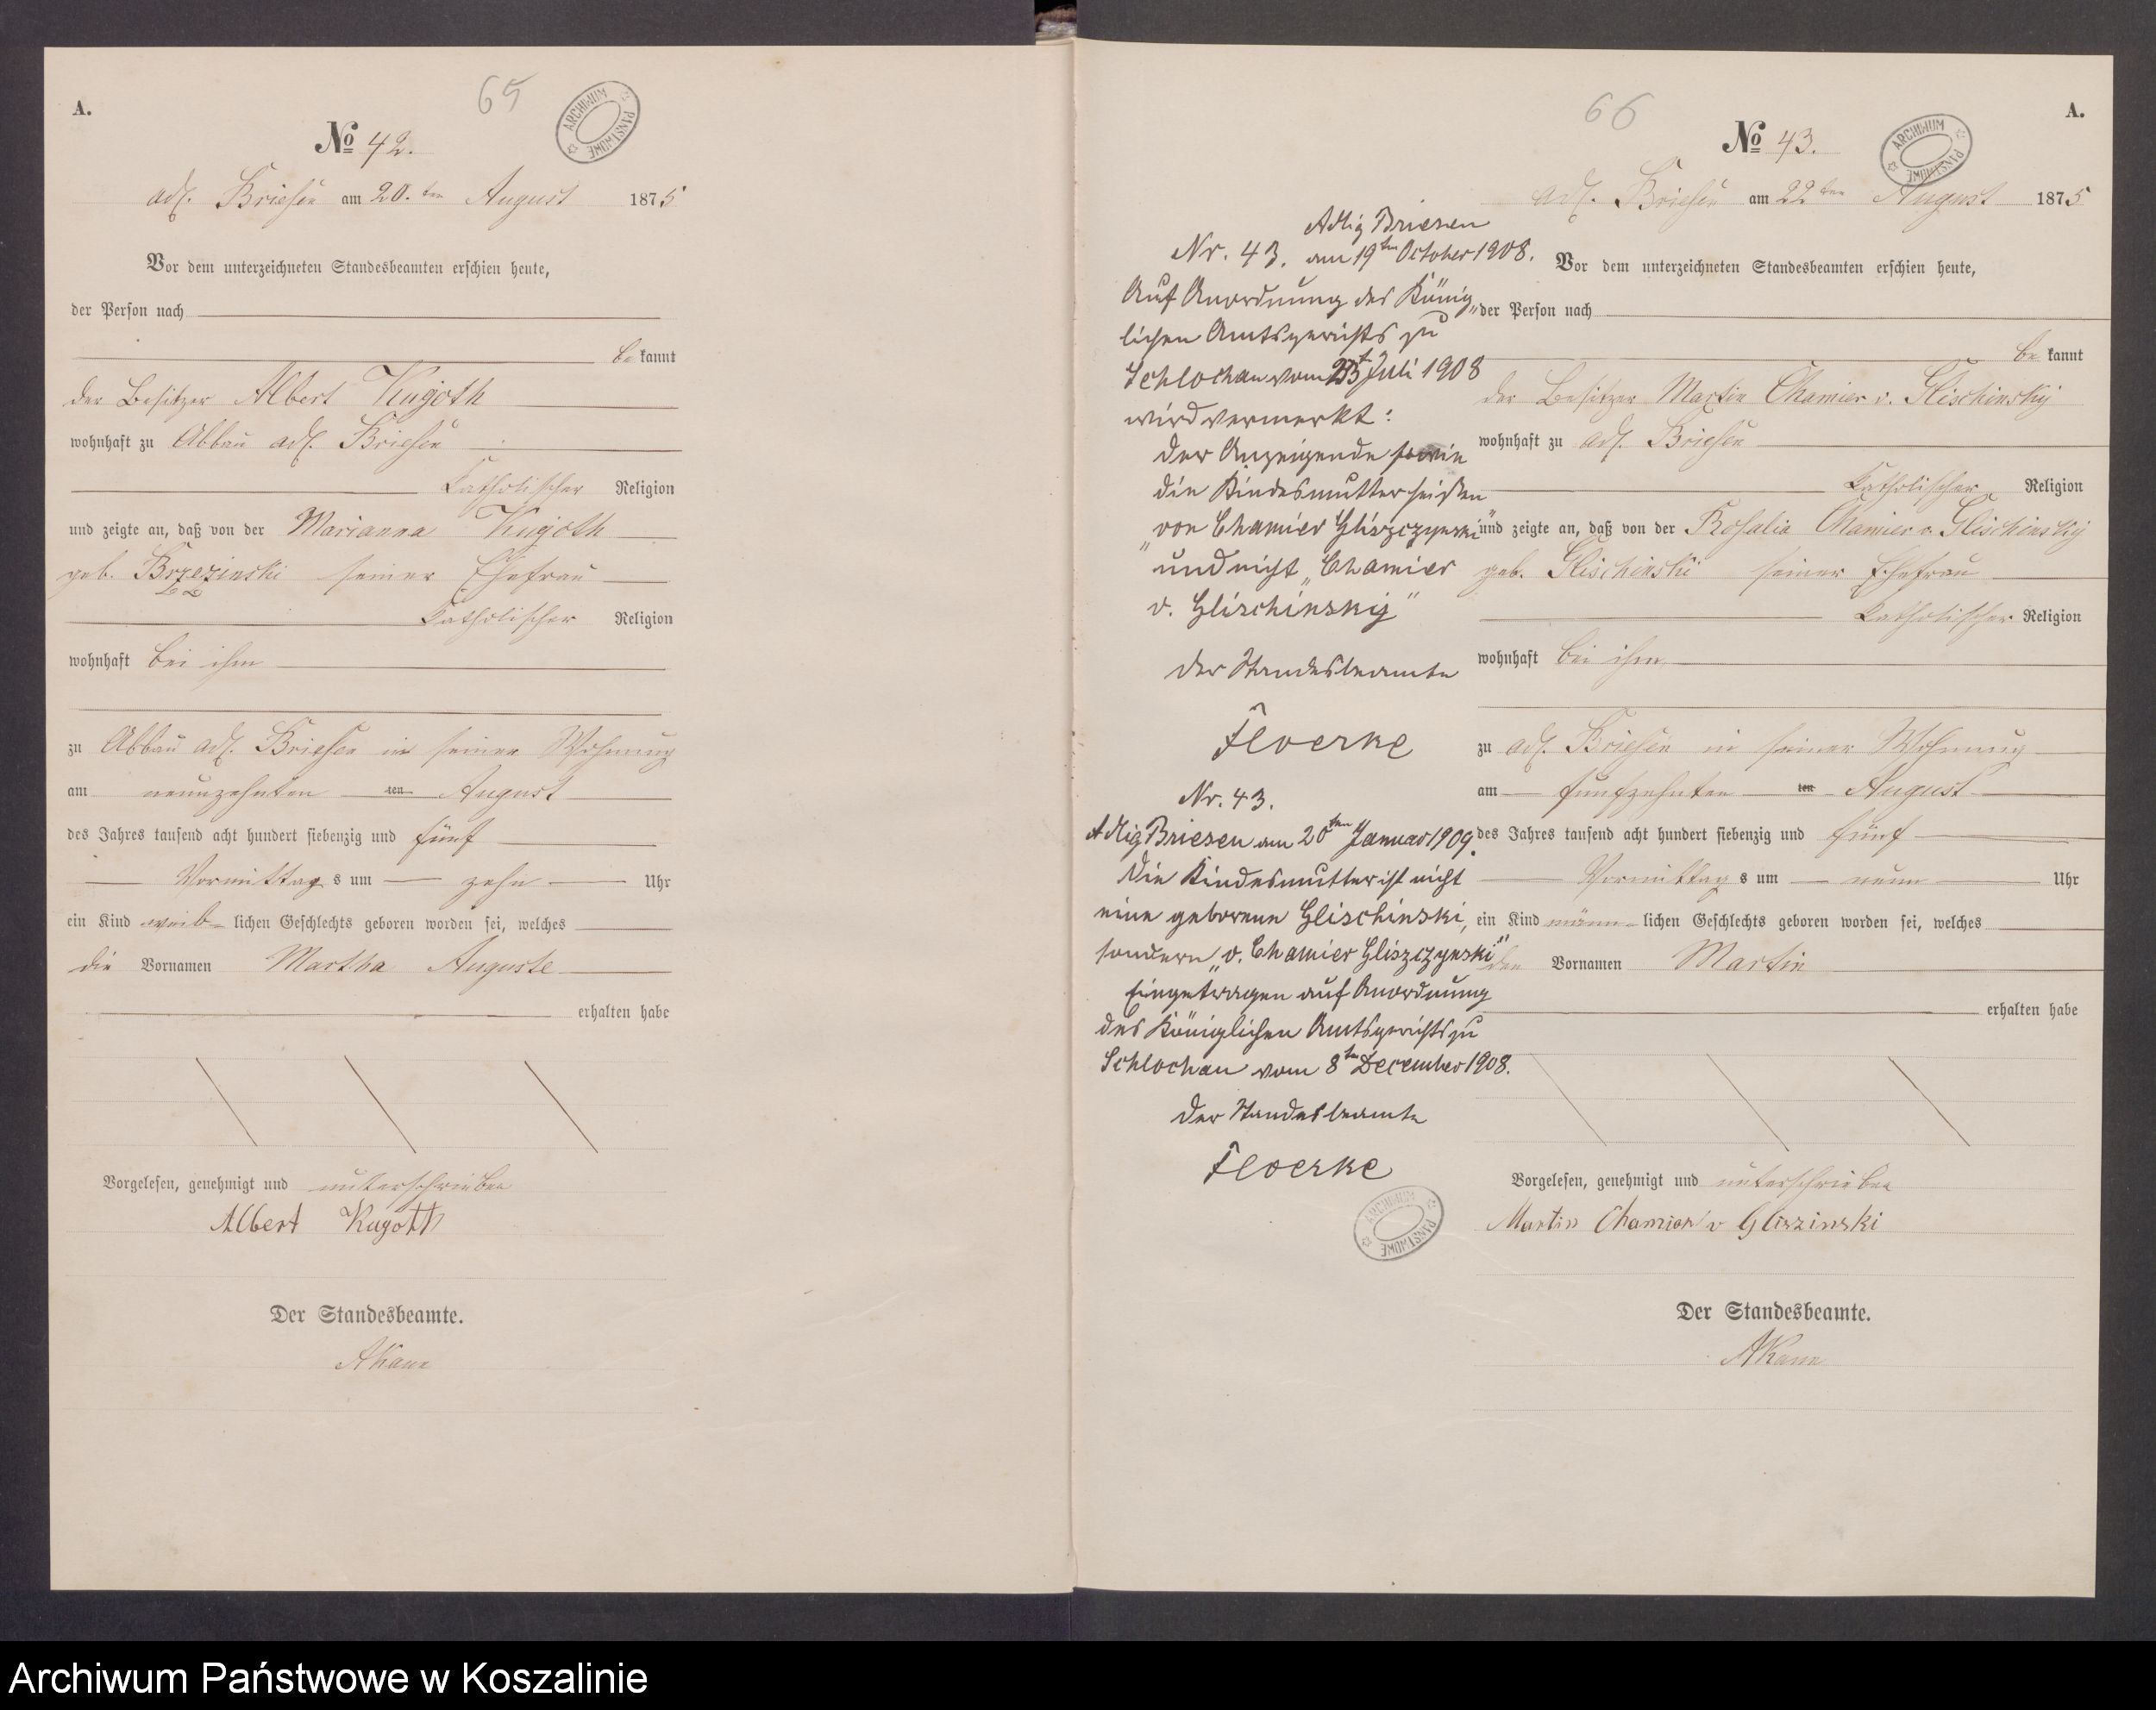 65
A.
ARCHIWUM PAŃSTWOWE
No 42.
adl. Briesen am 20.ten August 1875
Vor dem unterzeichneten Standesbeamten erschien heute,
der Person nach
be kannt
der Besitzer Albert Kugoth
wohnhaft zu Abbau adl. Briesen
Katholischer Religion
und zeigte an, daß von der Marianna Kugoth
geb. Brzezinski seiner Ehefrau
Katholischer Religion
wohnhaft bei ihm
zu Abbau adl. Briesen in seiner Wohnung
am neunzehnten ten August
des Jahres tausend acht hundert siebenzig und fünf
Vormittag s um zehn Uhr
ein Kind weib- lichen Geschlechts geboren worden sei, welches
die Vornamen Martha Auguste
erhalten habe
Vorgelesen, genehmigt und unterschrieben
Albert Kugoth
Der Standesbeamte.
AKann
66
A.
ARCHIWUM PAŃSTWOWE
No 43.
adl. Briesen am 22ten August 1875
Vor dem unterzeichneten Standesbeamten erschien heute,
der Person nach
be kannt
der Besitzer Martin Chamier v. Glischinsky
wohnhaft zu adl. Briesen
Katholischer Religion
und zeigte an, daß von der Rosalia Chamier v. Glischinsky
geb. Glischinski seiner Ehefrau
Katholischer Religion
wohnhaft bei ihm
zu adl. Briesen in seiner Wohnung
am funfzehnten ten August
des Jahres tausend acht hundert siebenzig und fünf
Vormittag s um neun Uhr
ein Kind männ- lichen Geschlechts geboren worden sei, welches
den Vornamen Martin
erhalten habe
Vorgelesen, genehmigt und unterschrieben
Martin Chamier v Gliszinski
Der Standesbeamte.
AKann
Adlig Briesen
Nr. 43. am 19ten October 1908.
Auf Anordnung des König„
lichen Amtsgerichts zu
Schlochau vom Juli 1908
wird vermerkt:
Der Anzeigende sowie
die Kindesmutter heißen
„von Chamier Gliszczynski“
und nicht „Chamier
v. Glischinsky“
Der Standesbeamte
Floerke
Nr. 43.
Adlig Briesen am 20ten Januar 1909.
Die Kindesmutter ist nicht
eine geborene Glischinski,
sondern „v. Chamier Gliszczynski“
Eingetragen auf Anordnung
des Königlichen Amtsgerichts zu
Schlochau vom 8ten December 1908.
Der Standesbeamte
Floerke
ARCHIWUM PAŃSTWOWE
Archiwum Państwowe w Koszalinie